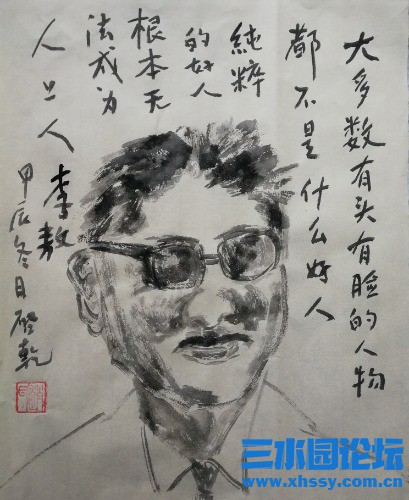 大多数有头有脸的人物
都不是什么好人
純粹
的好人
根本无
法成为
人上人
李敖
甲辰冬日啓乾
三水园论坛
www.xhssy.com.cn